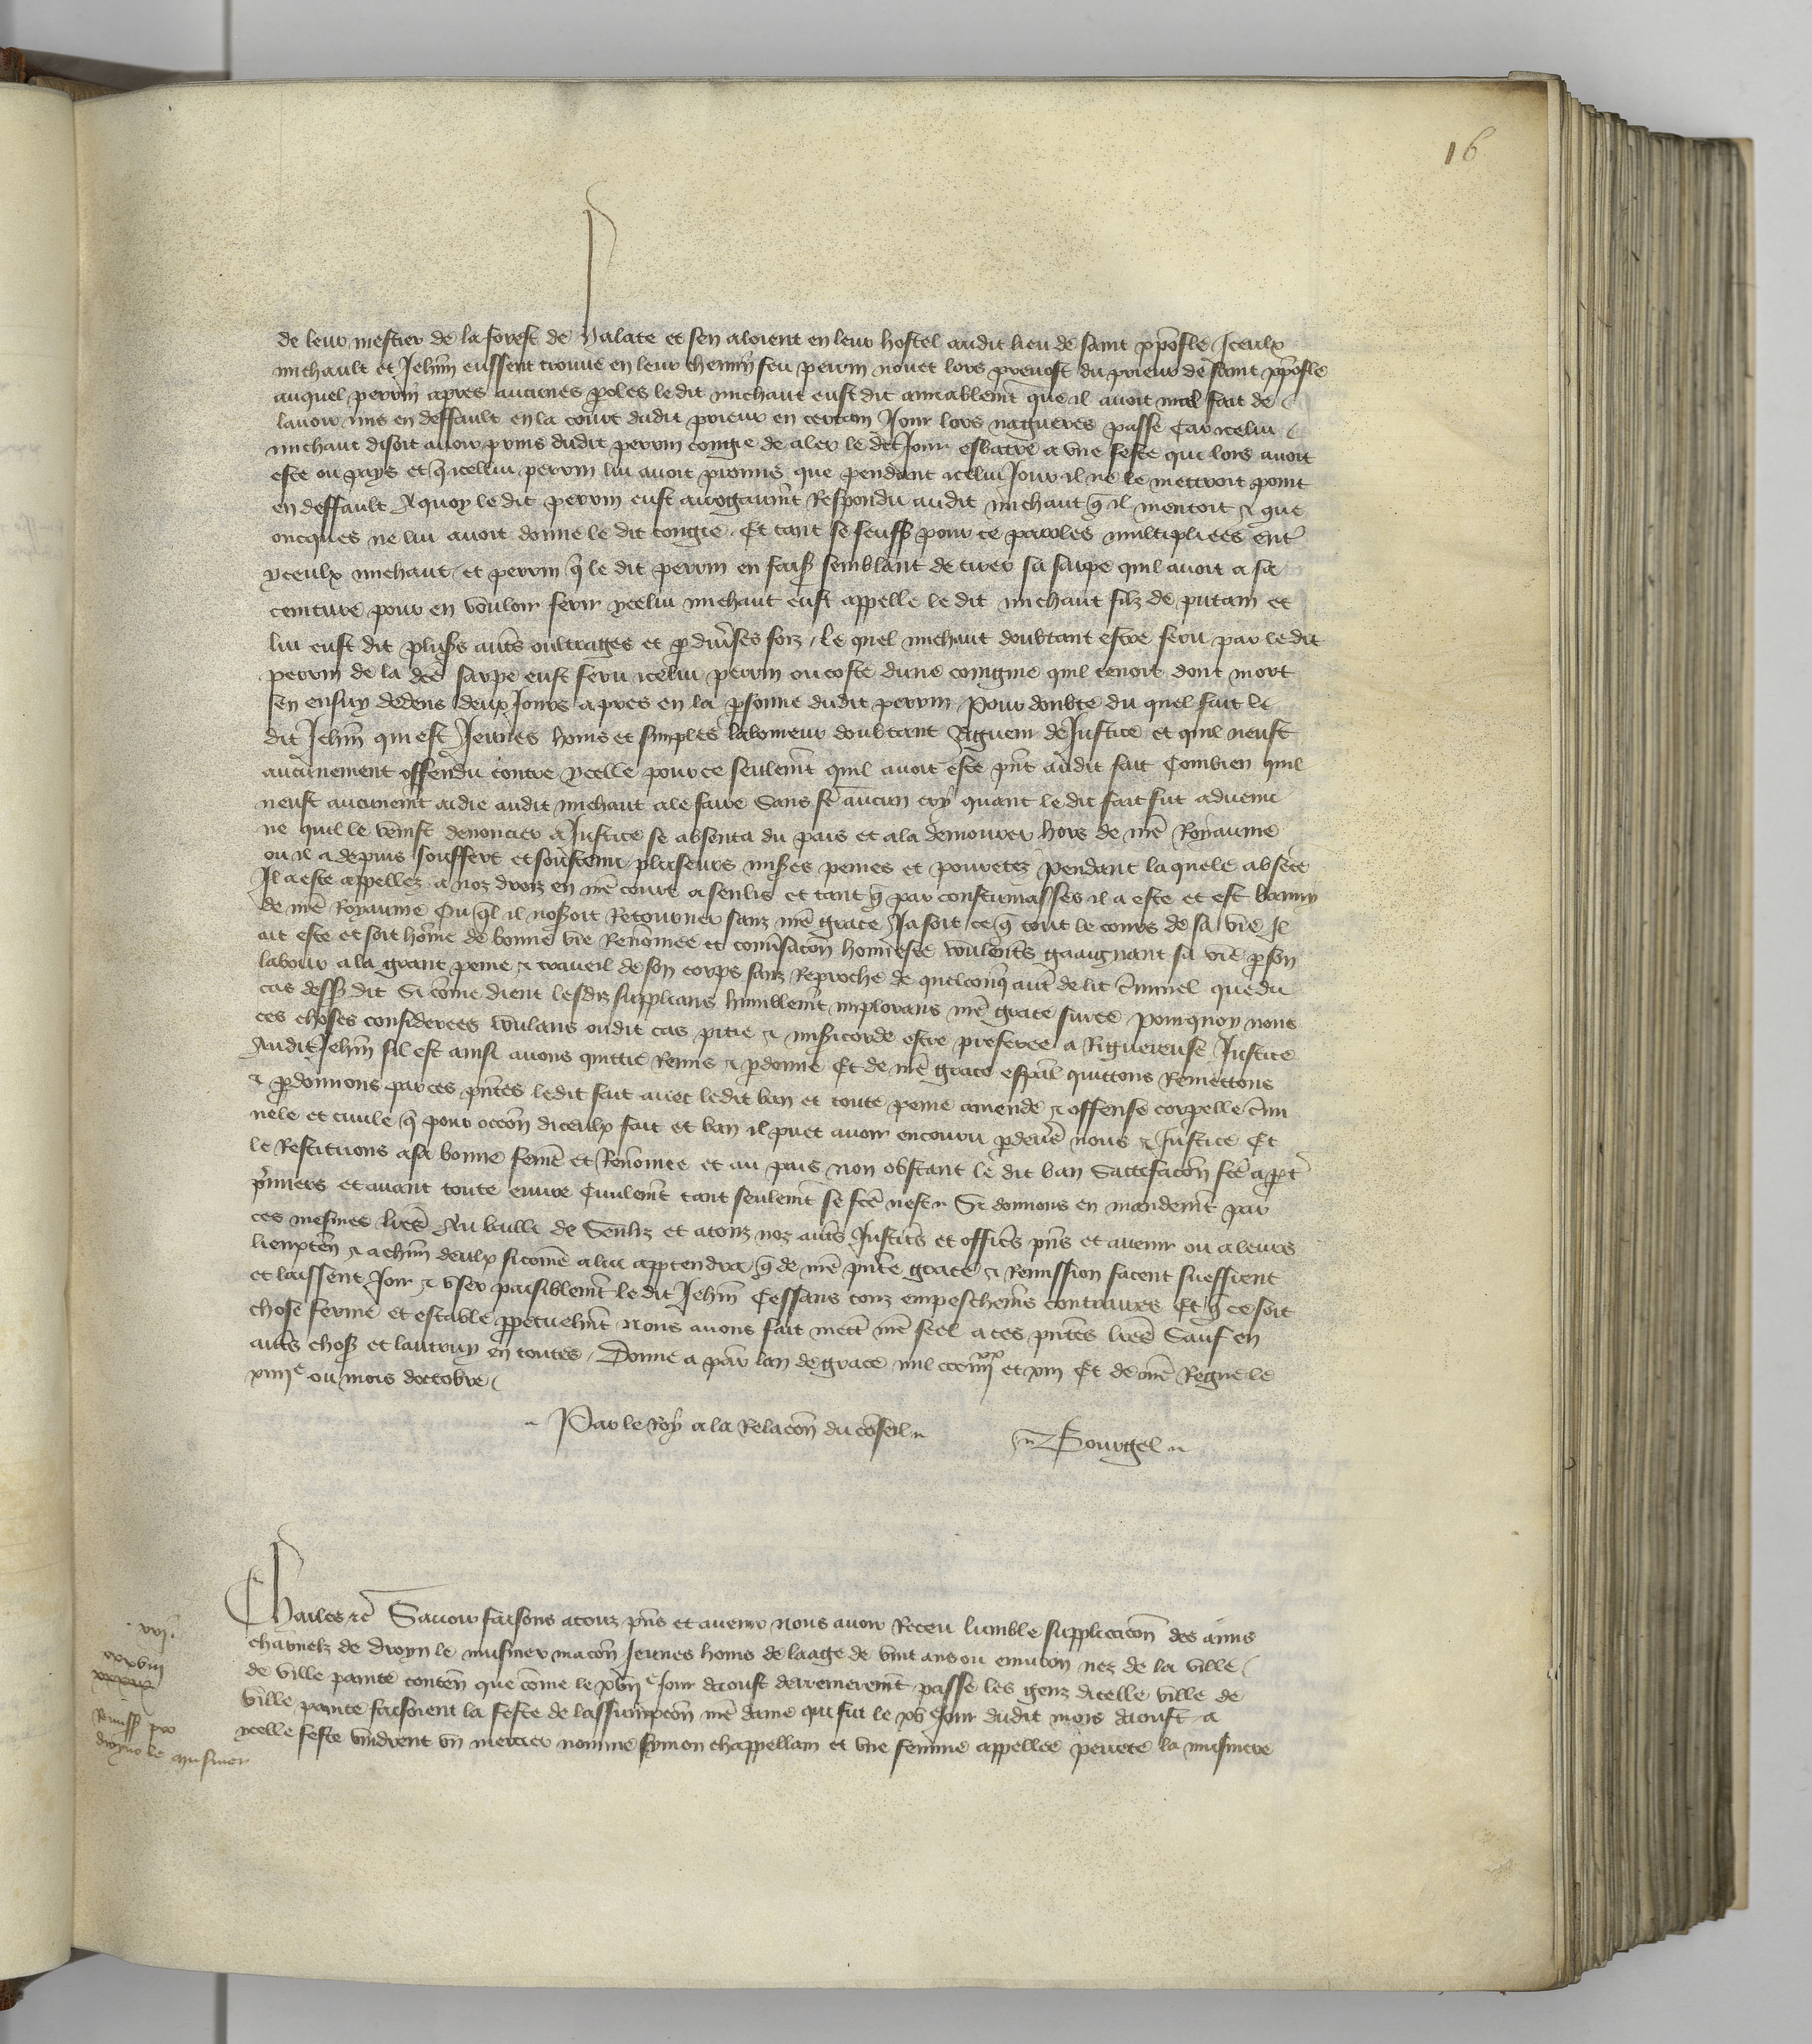 16
de leur mestier de la forest de halate et sen aloient en leur hostel audit lieu de saint xpofle Iceulx
michault et Jehin eussent trouue en leur chemin feu perrin nouet lors preuost du prieur de saint xpofle
auquel perrin apres aucunes poles ledit michaut eust dit amiablemt que il auoit mal fait de
lauoir mis en deffault en la court dudit prieur en certain Jour lors nagueres passe Car icelui
michaut disoit auoir prins dudit perrin congie de aler le dit Jour esbatre a vne feste qui lors auoit
este ou pays et q icellui perrin lui auoit promis que pendant icellui Jour il ne le mettroit point
en deffault A quoy le dit perrin eust arrogaumt Respondu audit michaut q il mentoit & que
oncques ne lui auoit donne le dit congie. Et tant se feuss pour ce paroles multipliees ent
yceulx michaut et perrin q le dit perrin en fais semblant de tirer sa sarpe quil auoit a sa
ceinture pour en vouloir ferir ycelui michaut eust appelle le dit michaut filz de putain et
lui eust dit pluss auts oultrages et p diuses foiz / Le quel michaut doubtant estre feru par le dit
perrin de la dce sarpe eust feru icelui perrin ou coste dune coingnie quil tenoit dont mort
sen ensuy dedens deux Jours apres en la psonne dudit perrin Pour doubte du quel fait le
dit Jehin qui est Jeunes homs et simples laboureur doubtant Riguem de Justice et quil neust
aucunement offendu contre ycelle pource seulemt quil auoit este pnt audit fait Combien quil
neust aucunemt aidie audit michaut a le faire Sans fe aucun cry quant le dit fait fut aduenu
ne quil le venist denoncier a Justice se absenta du pais et ala demourer hors de nre Royaume
ou il a depuis souffert et soustenu pluseurs miss peines et pouretez pendant laquele absece
Il a este appellez a noz droiz en nre court a senlis et tant q par constumasses il a este et est banny
de nre Royaume Ou ql il nosoit Retourner sanz nre grace Ja soit ce q tout le cours de sa vie Il
ait este et soit home de bonne vie Renomee et conusacon honneste gaaignant sa vie p son
labour a la grant peine & trauail de son corps sanz Reproche de quelconq aut delit cminel que du
cas dess dit Si come dient lesdiz supplians humblemt implorans nre grace sur ce Pourquoy nous
ces choses considerees voulans oudit cas pitie & misicorde estre preferee a Rigueureuse Justice
Audit Jehin sil est ainsi auons quittie Remis & pdonne Et de nre grace espal quittons Remettons
& pdonnons par ces pntes ledit fait auec ledit ban et toute peine amende & offense corpelle cmi
nele et ciuile q pour occon diceulx fait et ban il puet auoir encouru pdeue nous & Justice Et
le Restituons a sa bonne feme et Renomee et au pais non obstant le dit ban Sattefacon fce a pt
pmiers et auant toute euure Ciuilemt tant seulemt se fce nest Si donnons en mandemt par
ces mesmes lres Au bailli de Senliz et a touz noz auts Justices et offics pns et auenir ou a leurs
lieuxten & a chun deulx si come a lui apptendra q de nre pnte grace & Remission facent sueffrent
et laissent Joir & vser paisiblemt le dit Jehin Cessans touz empeschems contraires Et q ce soit
chose ferme et estable ppetuelmt Nous auons fait mett nre seel a ces pntes lres Sauf en
auts chos et lautruy en toutes / Donne a par lan de grace mil ccc iiiixx et xiii Et de nre Regne le
xiiiie ou mois doctobre
Par le Roy a la Relacon du coseil
Bourgel
.xvi.
xxxviii
Remiss pro
droyno le musnier
Charles &c Sauoir faisons a touz pns et auenir Nous auoir Receu lumble supplicacon des amis
charnelz de droyn le musnier macon Jeunes homs de laage de vint ans ou enuiron nez de la ville
de ville painte conten que come le xviie Jour daoust derrenieremt passe les genz dicelle ville de
ville painte faisoient la feste de lassumpcon nre dame qui fut le xve Jour dudit mois daoust a
icelle feste vindrent vn mercier nomme symon chappellain et vne femme appellee perrete la musniere